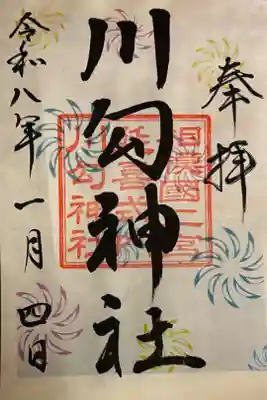 奉拝
川勾神社
相模國二宮
延喜式内
川勾神社
令和八年 一月 四日